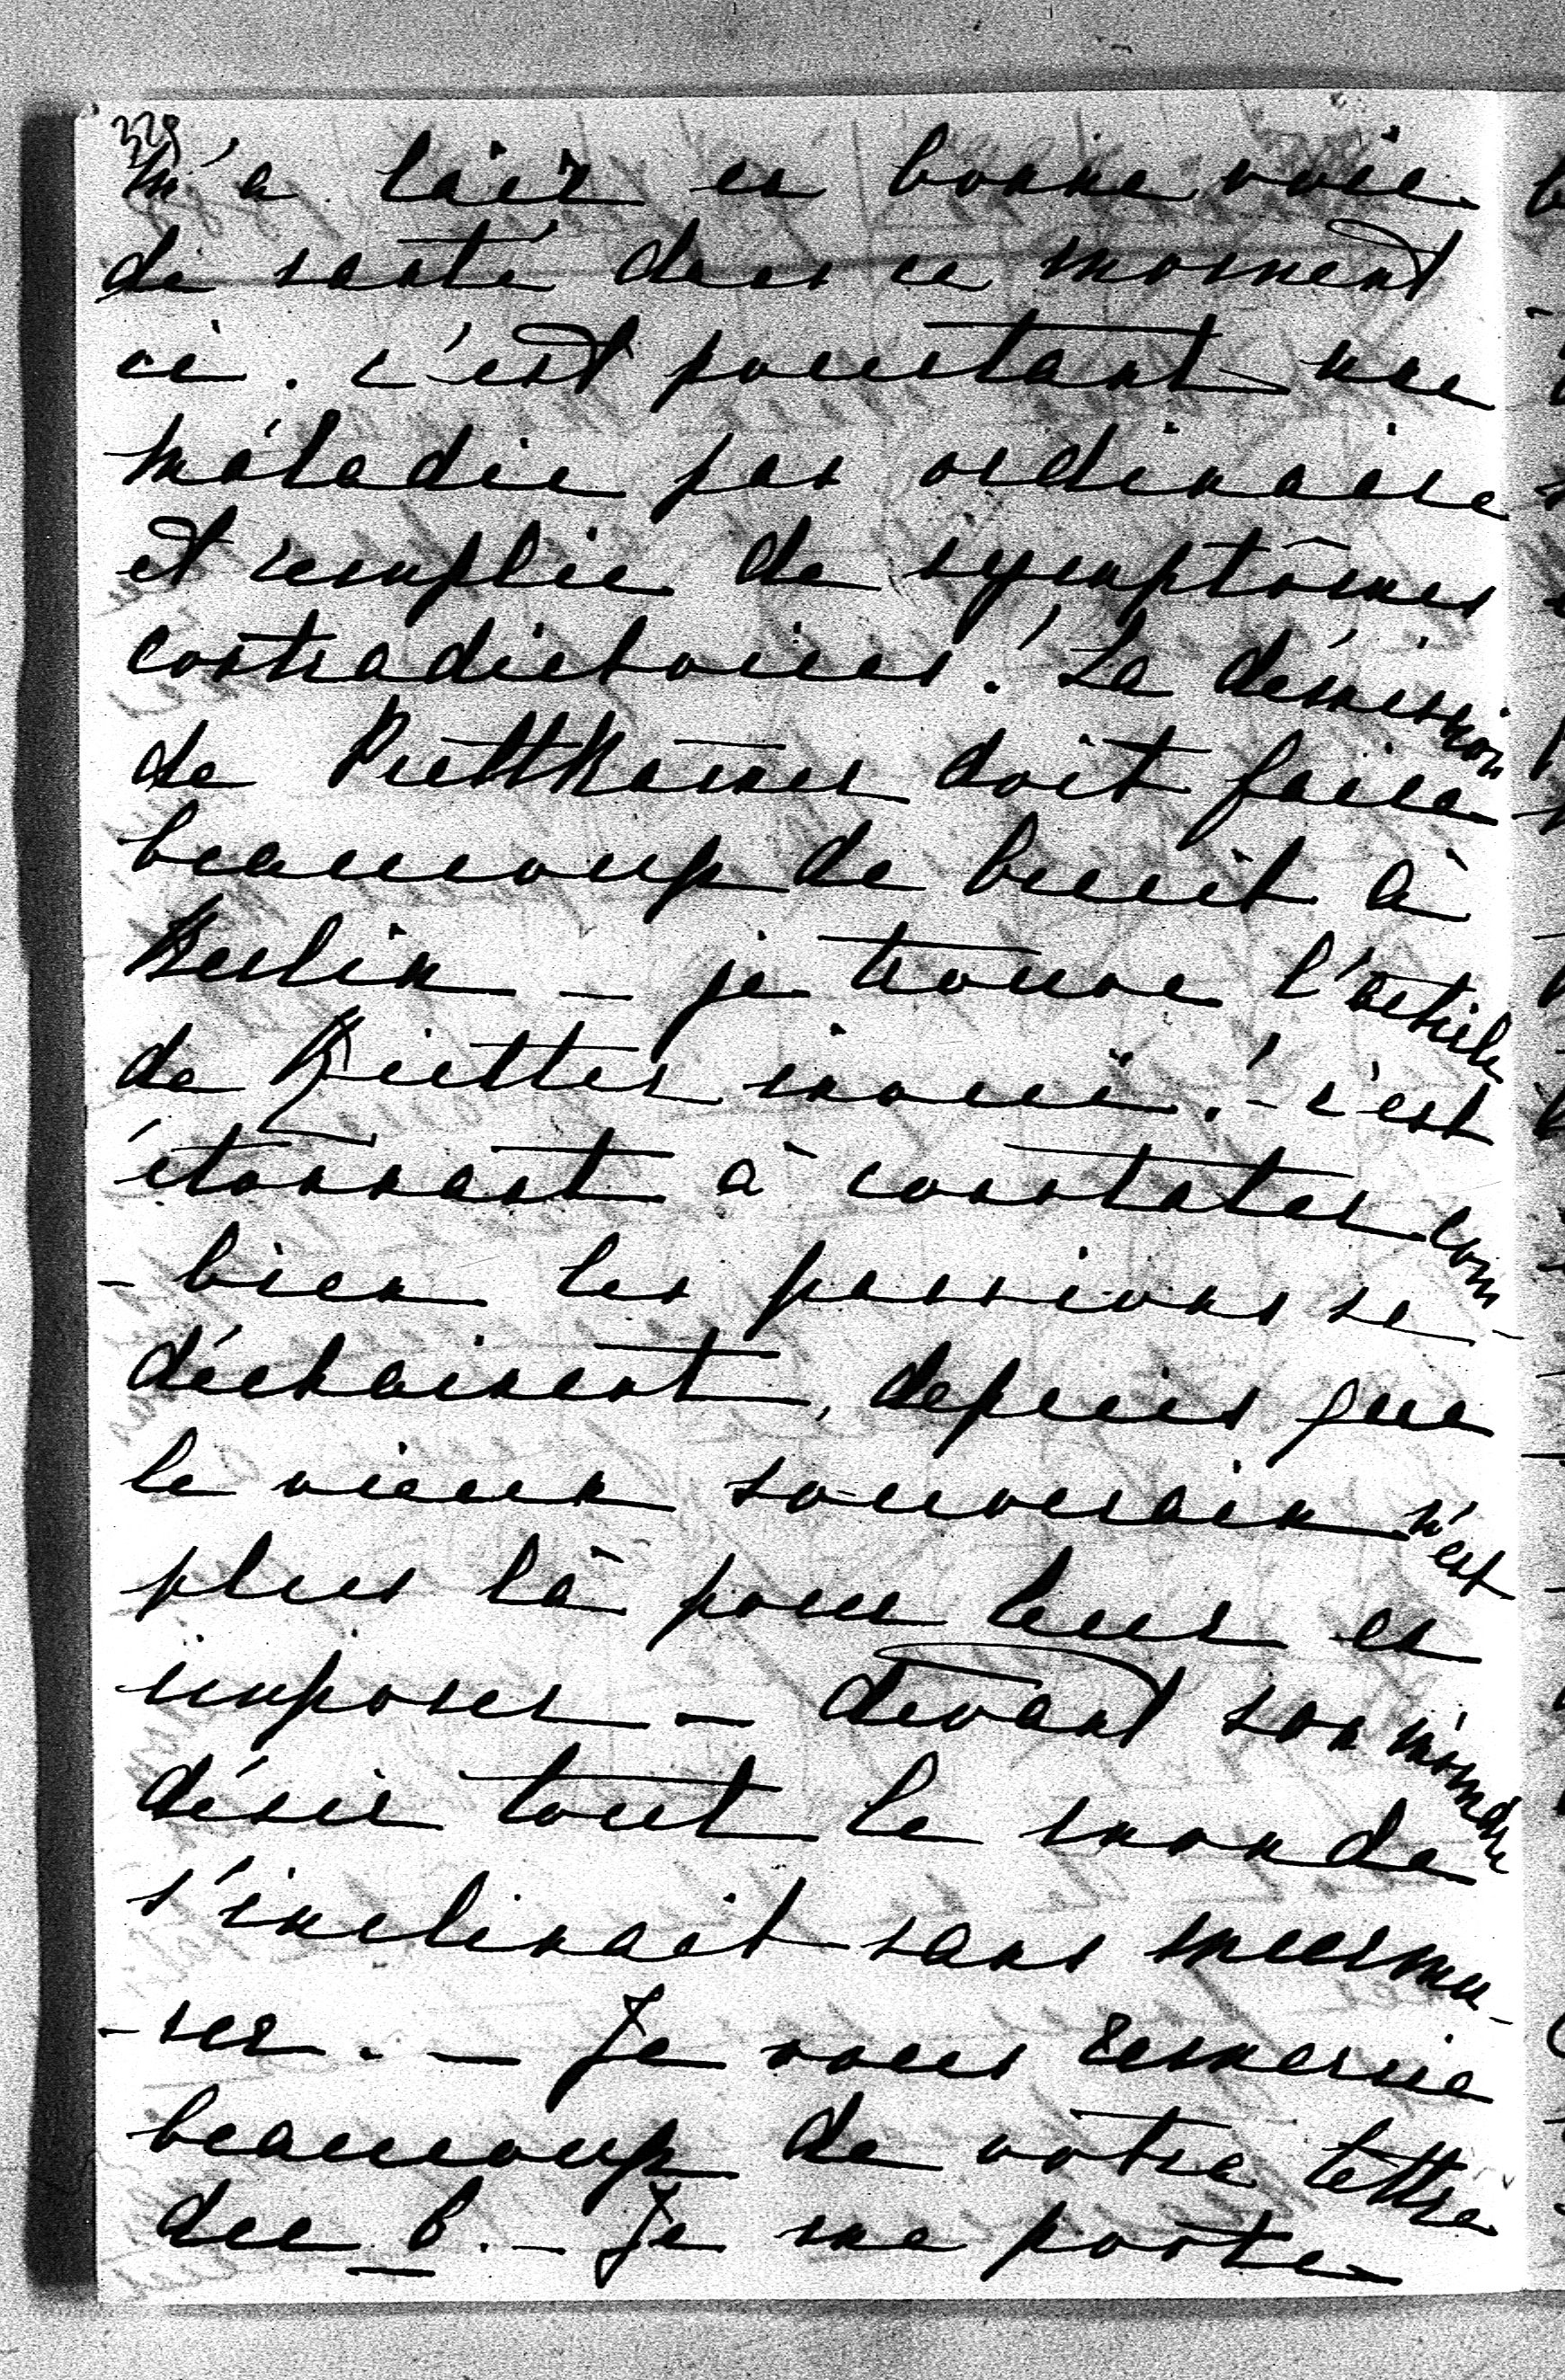 329
m'a l'air en bonne voie
de santé dans ce moment
ci. c'est pourtant une
maladie pas ordinaire
et remplie de symptômes
contradictoires! La démission
de Puttkamer doit faire
beaucoup de bruit à
Berlin – je trouve l'article
de Richter inouï! – c'est
étonnant à constater com
- bien les passions se
déchaînent, depuis que
le vieux souverain n'est
plus là pour leur en
imposer – devant son moindre
désir tout le monde
s'inclinait sans murmu-
- rer. – Je vous remercie
beaucoup de votre lettre
du 6. – Je me porte